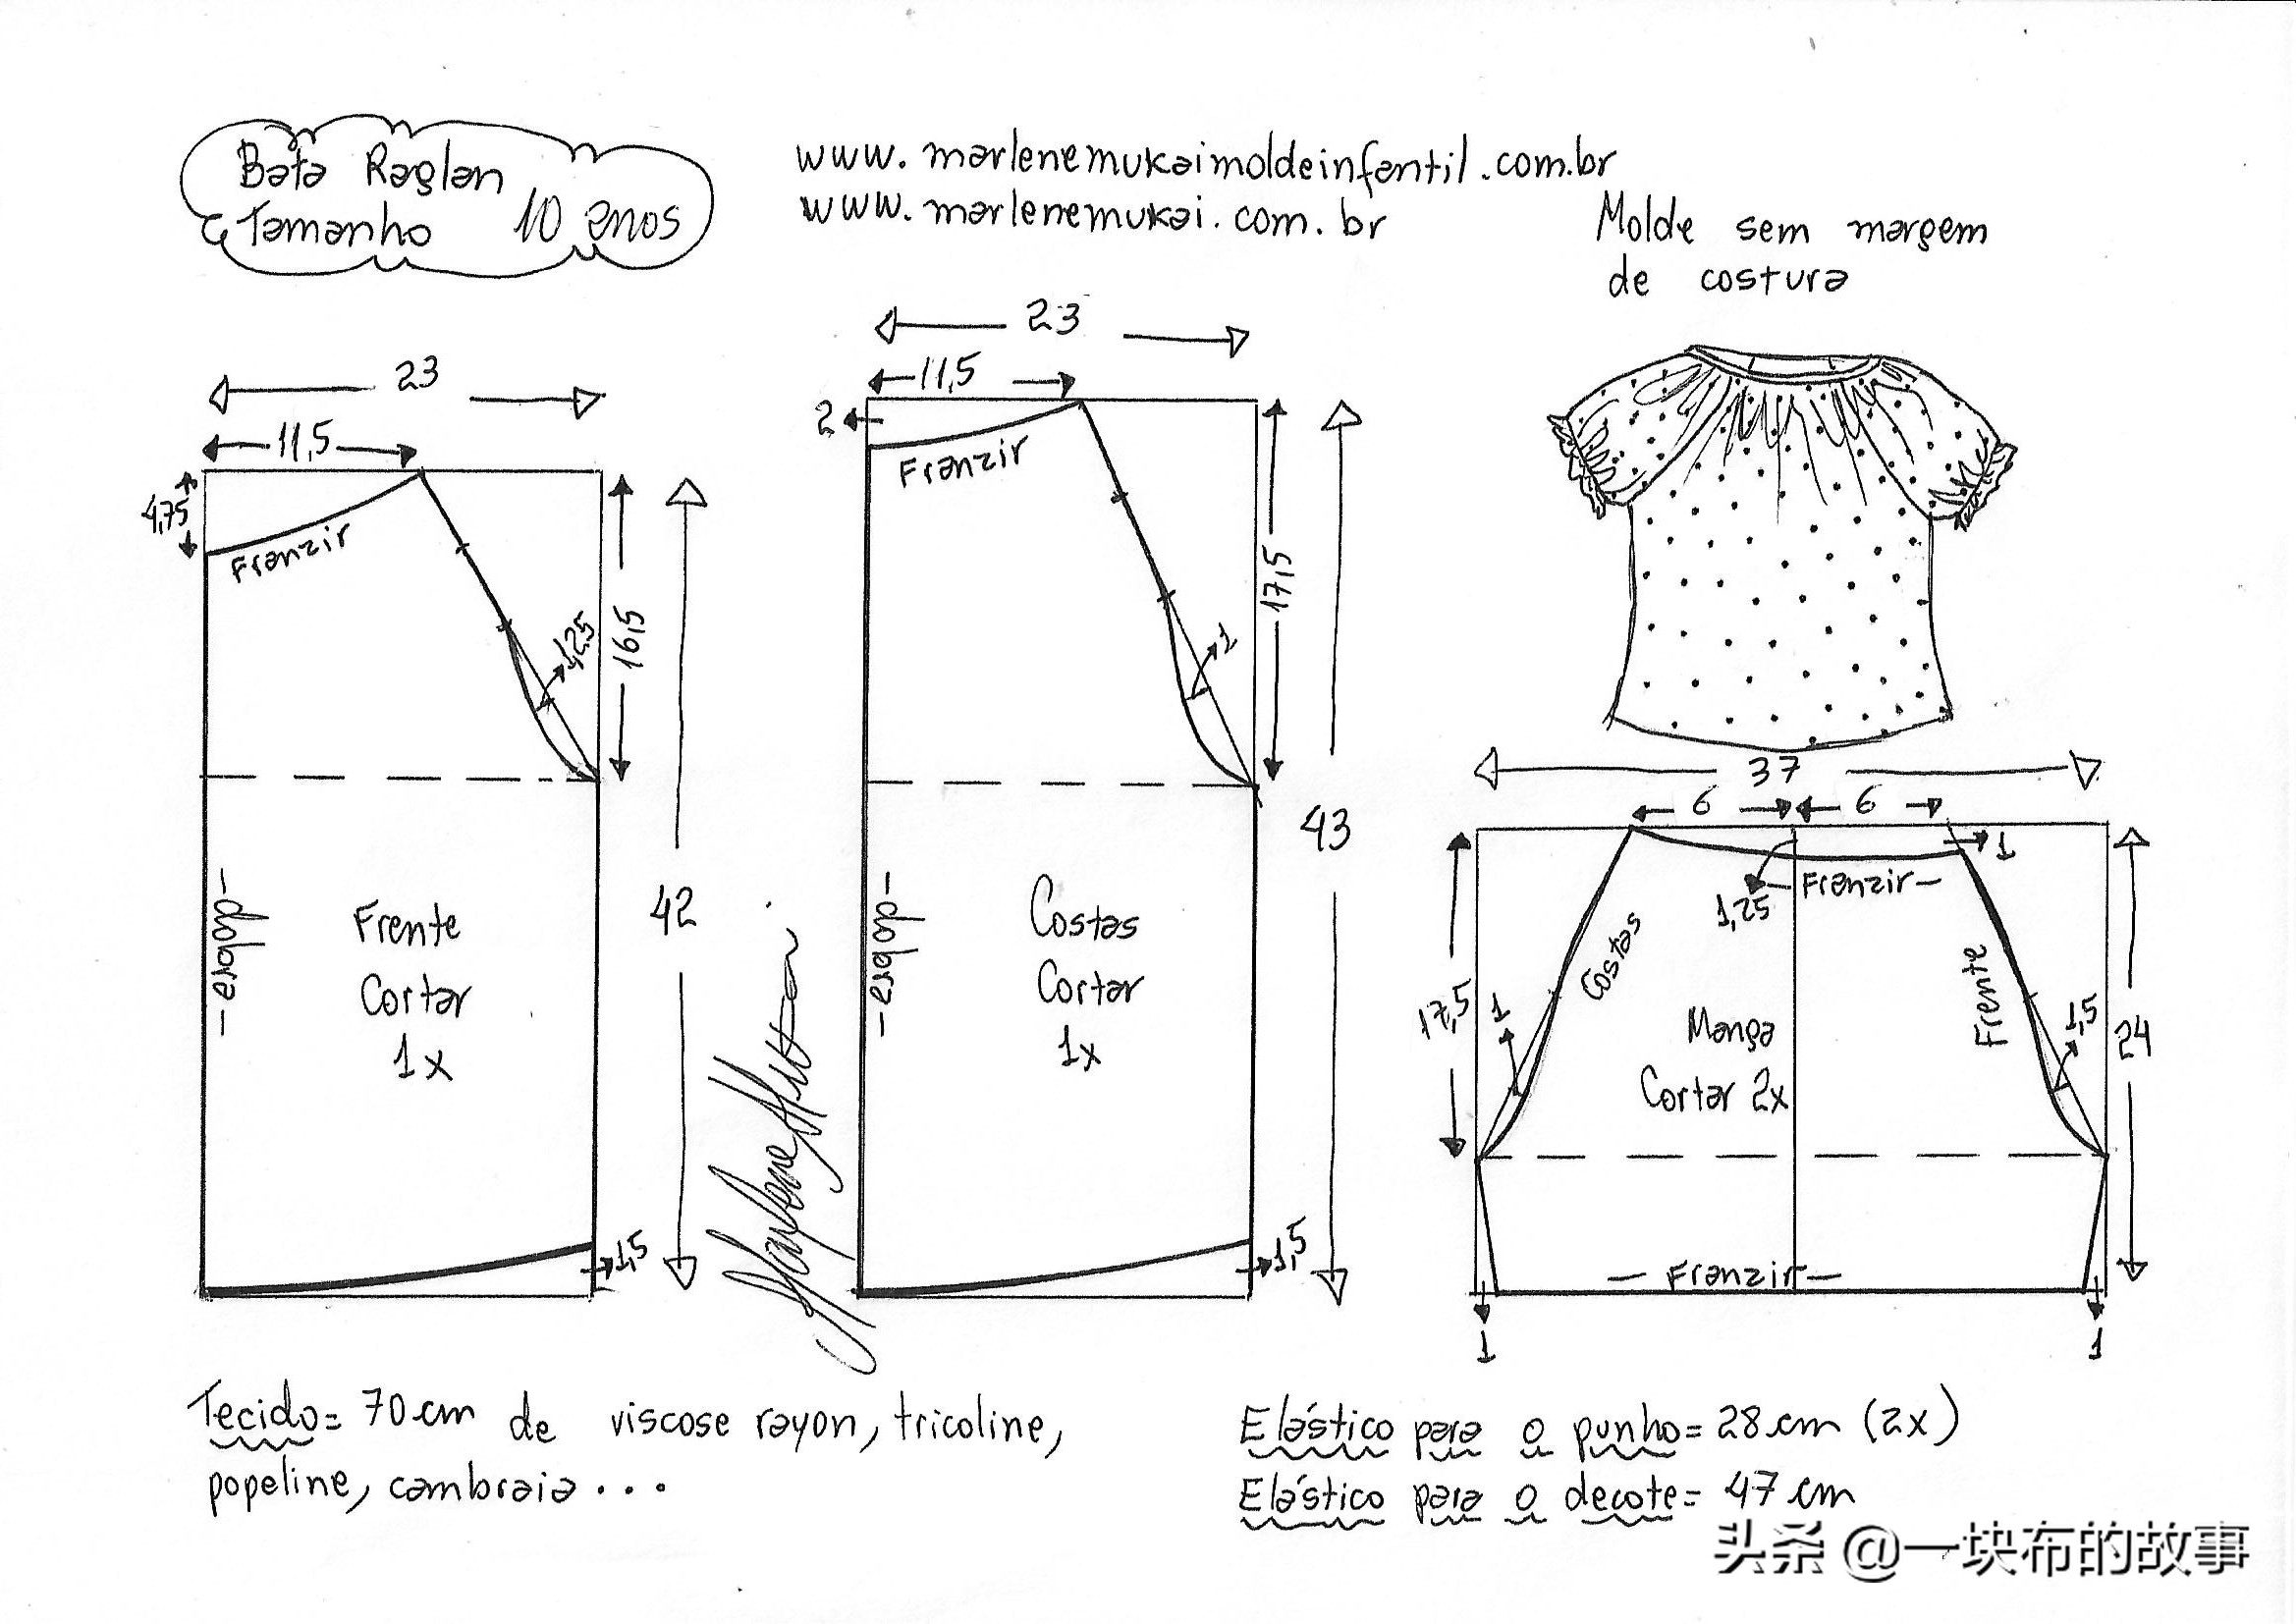 Bata Raglan
Tamanho 10 anos
www.marlenemukaimoldeinfantil.com.br
www.marlenemukai.com.br
Molde sem margem
de costura
23
11,5
4,75
Franzir
1,25
16,5
42
- dobra -
Frente
Cortar
1x
1,5
23
11,5
2
Franzir
17,5
1
43
- dobra -
Costas
Cortar
1x
1,5
Marlene Mukai
37
6 6
1
1,25
Franzir -
Costas
Frente
17,5
1
1,5
24
Manga
Cortar 2x
- Franzir -
1
1
Tecido = 70 cm de viscose rayon, tricoline,
popeline, cambraia...
Elástico para o punho = 28 cm (2x)
Elástico para o decote = 47 cm
头条 @一块布的故事